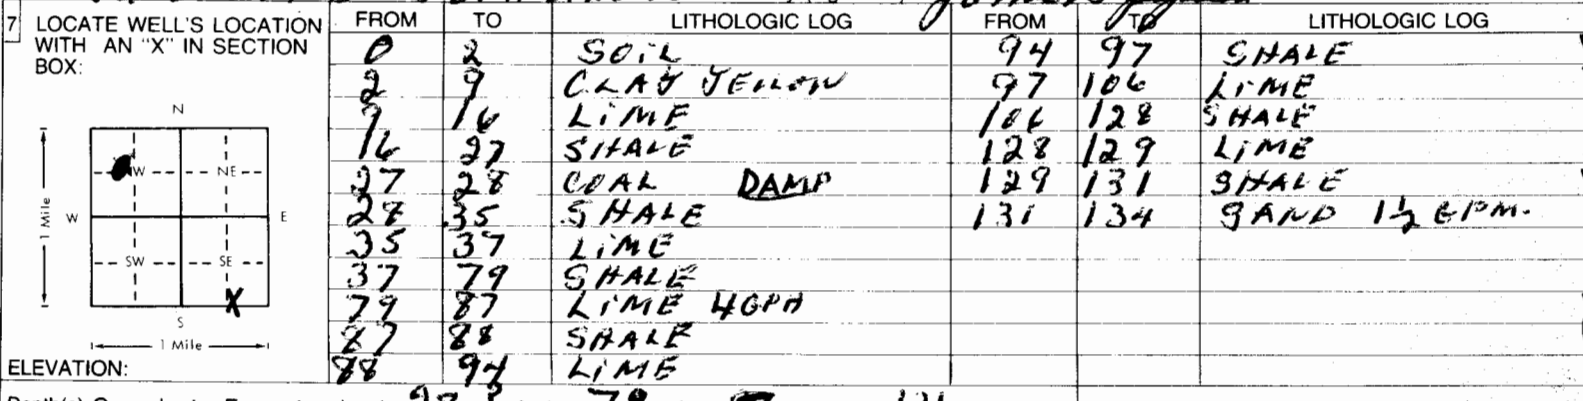 7 LOCATE WELL'S LOCATION WITH AN "X" IN SECTION BOX:
N
W NE
1 Mile W E
SW SE
X
S
1 Mile
ELEVATION:
FROM TO LITHOLOGIC LOG FROM TO LITHOLOGIC LOG
0 2 SOIL 94 97 SHALE
2 9 CLAY YELLOW 97 106 LIME
9 16 LIME 106 128 SHALE
16 27 SHALE 128 129 LIME
27 28 COAL DAMP 129 131 SHALE
28 35 SHALE 131 134 SAND 1½ GPM.
35 37 LIME
37 79 SHALE
79 87 LIME 4GPH
87 88 SHALE
88 94 LIME